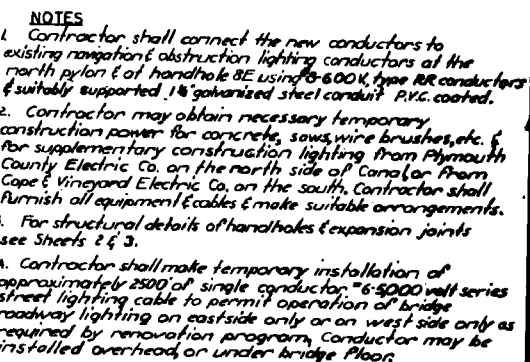 NOTES
1. Contractor shall connect the new conductors to
existing navigation & obstruction lighting conductors at the
north pylon & at handhole 8E using 8-600V, type RR conductors
& suitably supported galvanized steel conduit P.V.C. coated.
2. Contractor may obtain necessary temporary
construction power for concrete, saws, wire brushes, etc. &
for supplementary construction lighting from Plymouth
County Electric Co. on the north side of Canal, or from
Cape & Vineyard Electric Co. on the south. Contractor shall
furnish all equipment & cables & make suitable arrangements.
For structural details of handholes & expansion joints
see Sheets 2 & 3.
4. Contractor shall make temporary installation of
approximately 2500' of single conductor #6-5,000 volt series
street lighting cable to permit operation of bridge
roadway lighting on eastside only or on west side only as
required by renovation program, Conductor may be
installed overhead, or under bridge floor.